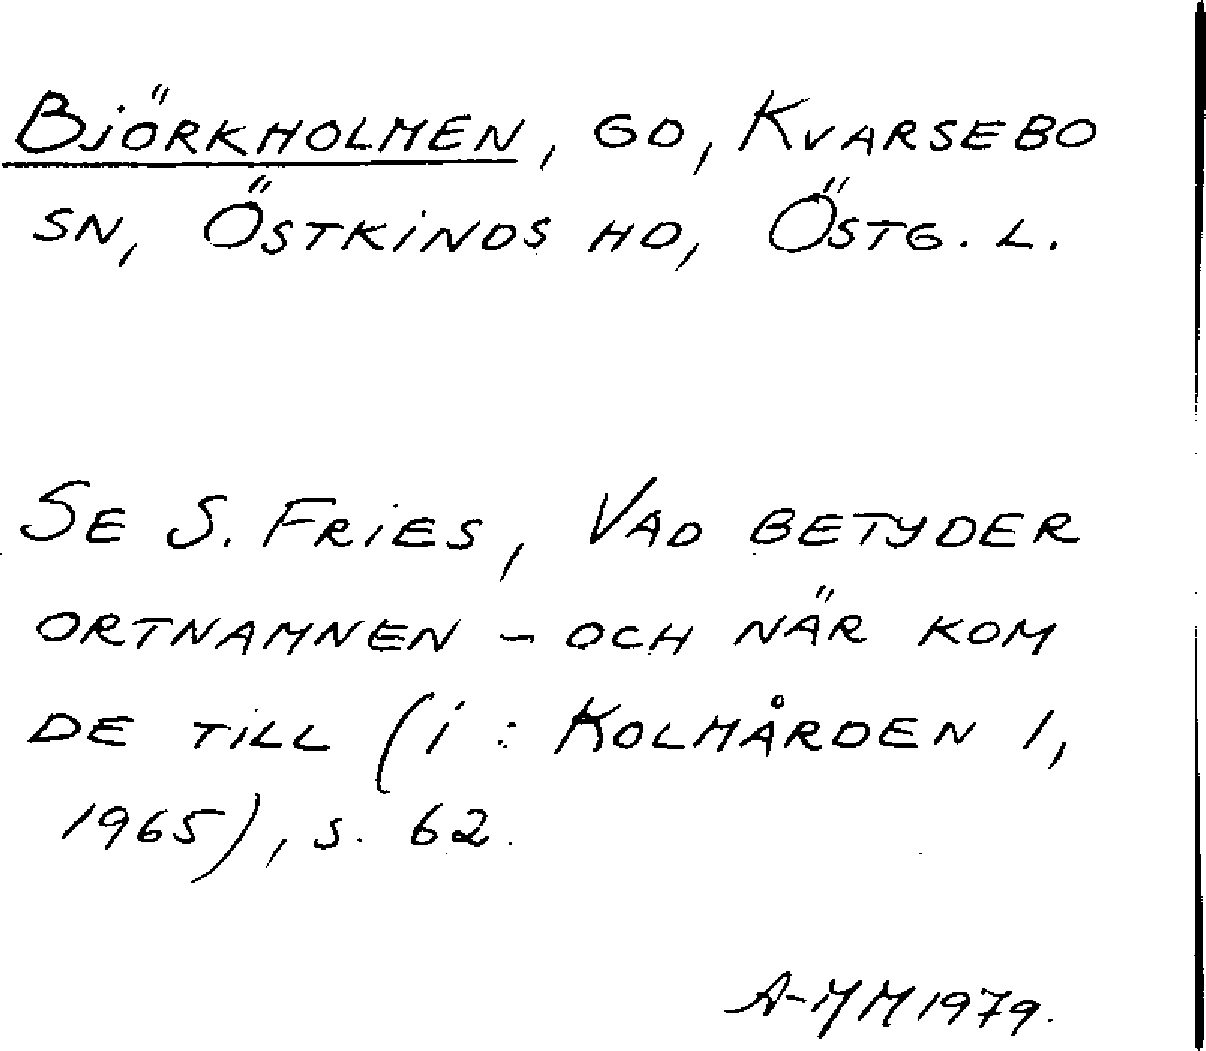 BJÖRKHOLMEN, GD, KVARSEBO
SN, ÖSTKINDS HD, ÖSTG. L.
SE S. FRIES, VAD BETYDER
ORTNAMNEN - OCH NÄR KOM
DE TILL (I: KOLMÅRDEN 1,
1965), S. 62.
A-MM 1979.